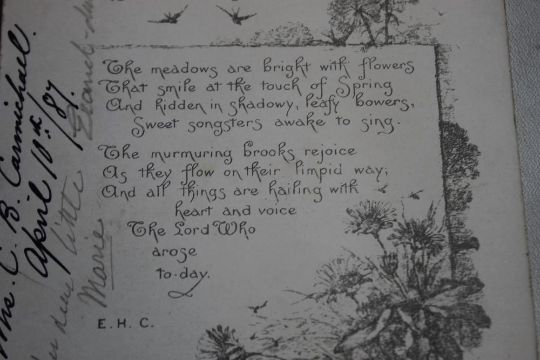 The meadows are bright with flowers
That smile at the touch of Spring
And hidden in shadowy, leafy bowers,
Sweet songsters awake to sing.
The murmuring brooks rejoice
As they flow on their limpid way;
And all things are hailing with
heart and voice
The Lord Who
arose
to-day.
E. H. C.
Mrs. C. B. Carmichael.
April 10th /87.
little
Marie